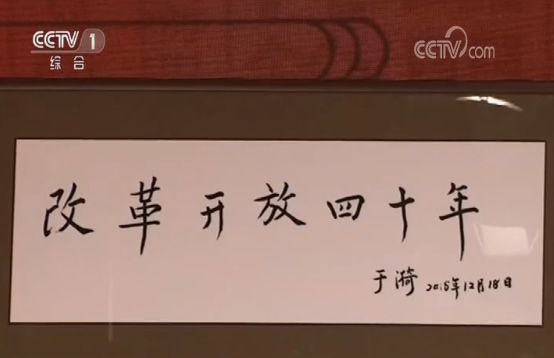 CCTV 1
综合
CCTV.com
改革开放四十年
于漪 2018年12月18日